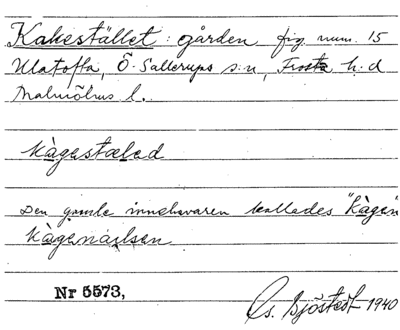 Kakestället: gården fig. num. 15
Ulatofta, Ö. Sallerups s:n, Frosta h:d
Malmöhus l.
kàgestæled
Den gamle innehavaren kallades "Kàgen"
Kàgenailsen
Nr 5573,
Gs. Sjöstedt 1940